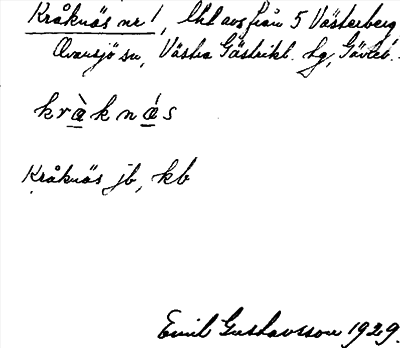 Kråknäs nr 1, lht avs från 5 Västerberg
Ovansjö sn, Västra Gästrikl. hg, Gävleb.
kràknás
Kråknäs jb, kb
Emil Gustavsson 1929.